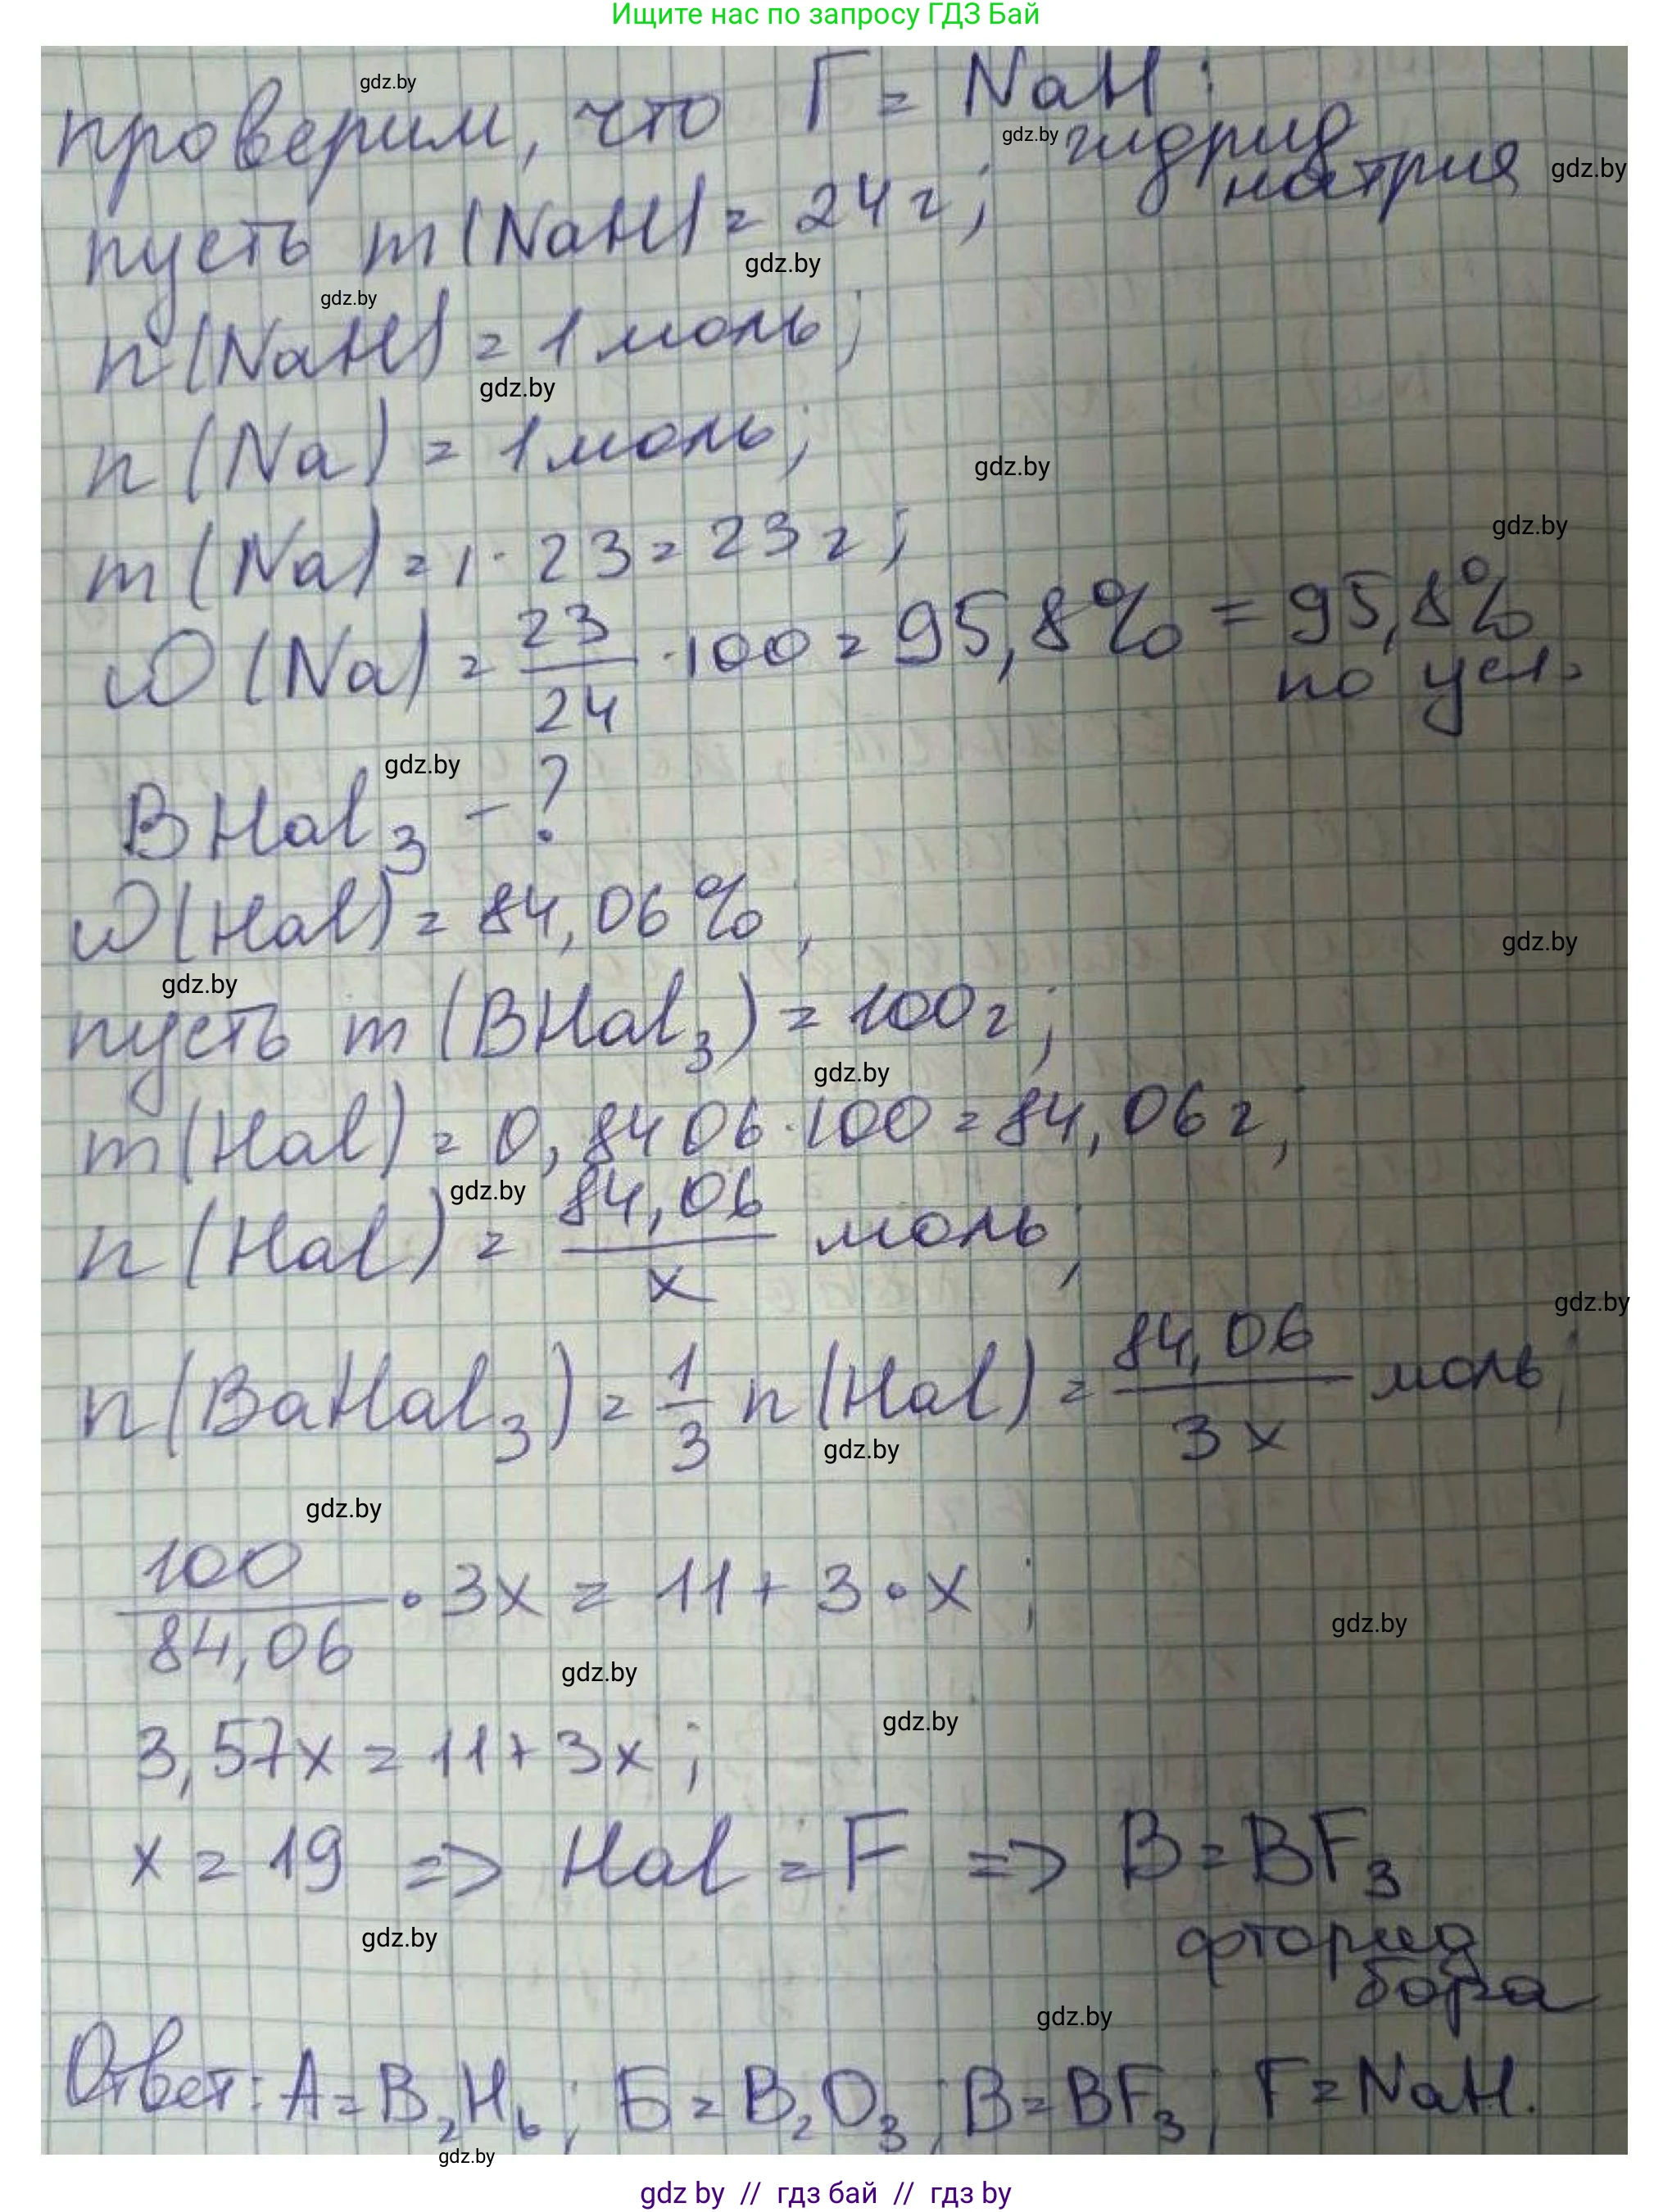 Ищите нас по запросу ГДЗ Бай
gdz.by
проверим, что Г = NaH:
gdz.by
гидрид
натрия
gdz.by
пусть m(NaH) = 24 г;
gdz.by
gdz.by
n(NaH) = 1 моль;
gdz.by
n(Na) = 1 моль;
gdz.by
gdz.by
m(Na) = 1 · 23 = 23 г;
ω(Na) = 23/24 · 100 = 95,8% = 95,8%
по усл.
gdz.by
BHal₃ - ?
ω(Hal) = 84,06%;
gdz.by
gdz.by
пусть m(BHal₃) = 100 г;
gdz.by
m(Hal) = 0,8406 · 100 = 84,06 г;
gdz.by
n(Hal) = 84,06/x моль;
gdz.by
n(BaHal₃) = 1/3 n(Hal) = 84,06/3x моль;
gdz.by
gdz.by
100/84,06 · 3x = 11 + 3 · x;
gdz.by
gdz.by
gdz.by
3,57x = 11 + 3x;
x = 19 => Hal = F => В = BF₃
gdz.by
фторид
бора
gdz.by
Ответ: А = B₂H₆; Б = B₂O₃; В = BF₃; Г = NaH.
gdz.by
gdz by // гдз бай // гдз by